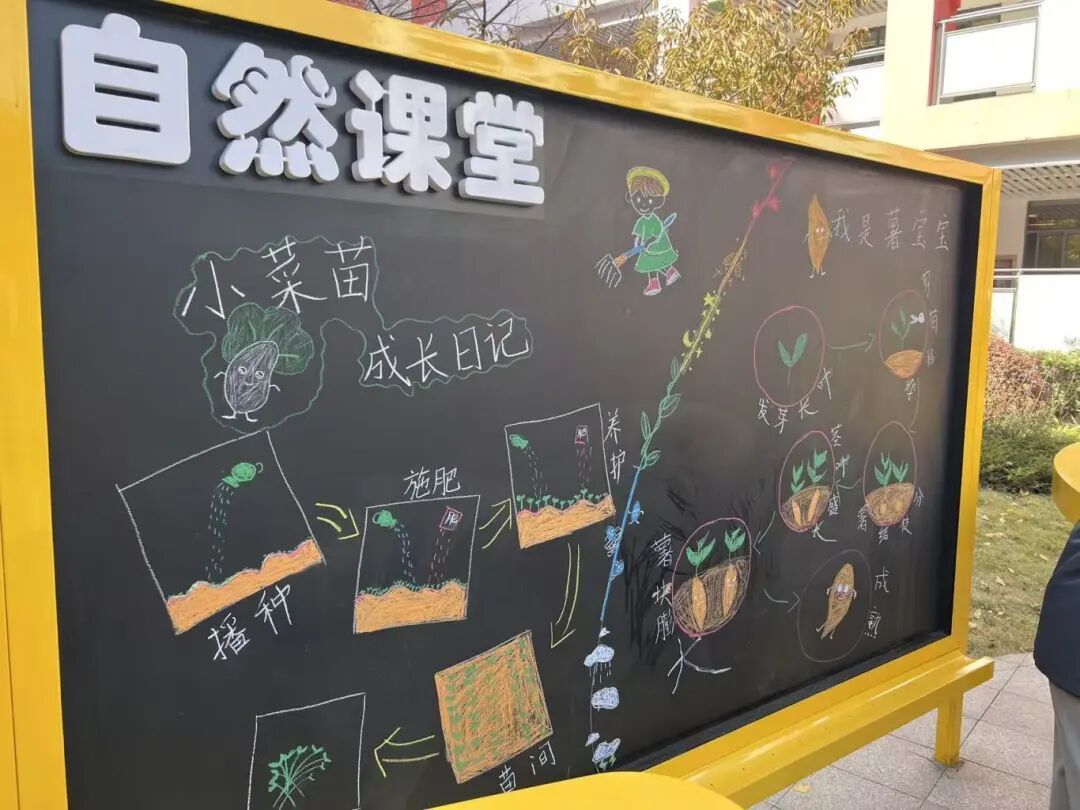 自然课堂
小菜苗
成长日记
播种
施肥
肥
养护
肥
苗间
我是薯宝宝
发芽长叶
苗
分枝结薯
茎叶盛长
薯块膨大
成熟